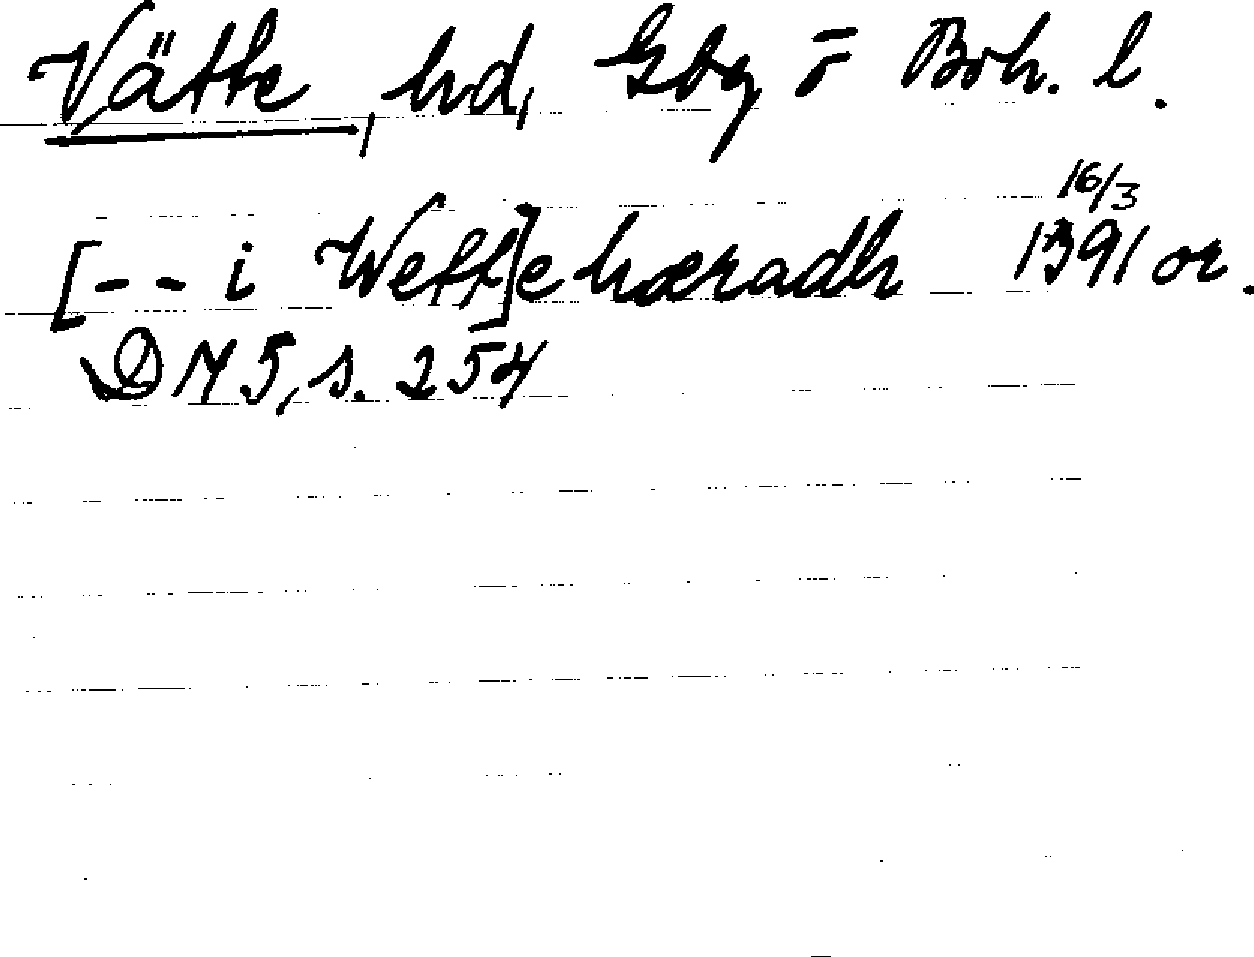 Vätte, hd, Gbg ō Boh. l.
[-- i Wett]e hæradh 16/3 1391 or.
DN 5, s. 254